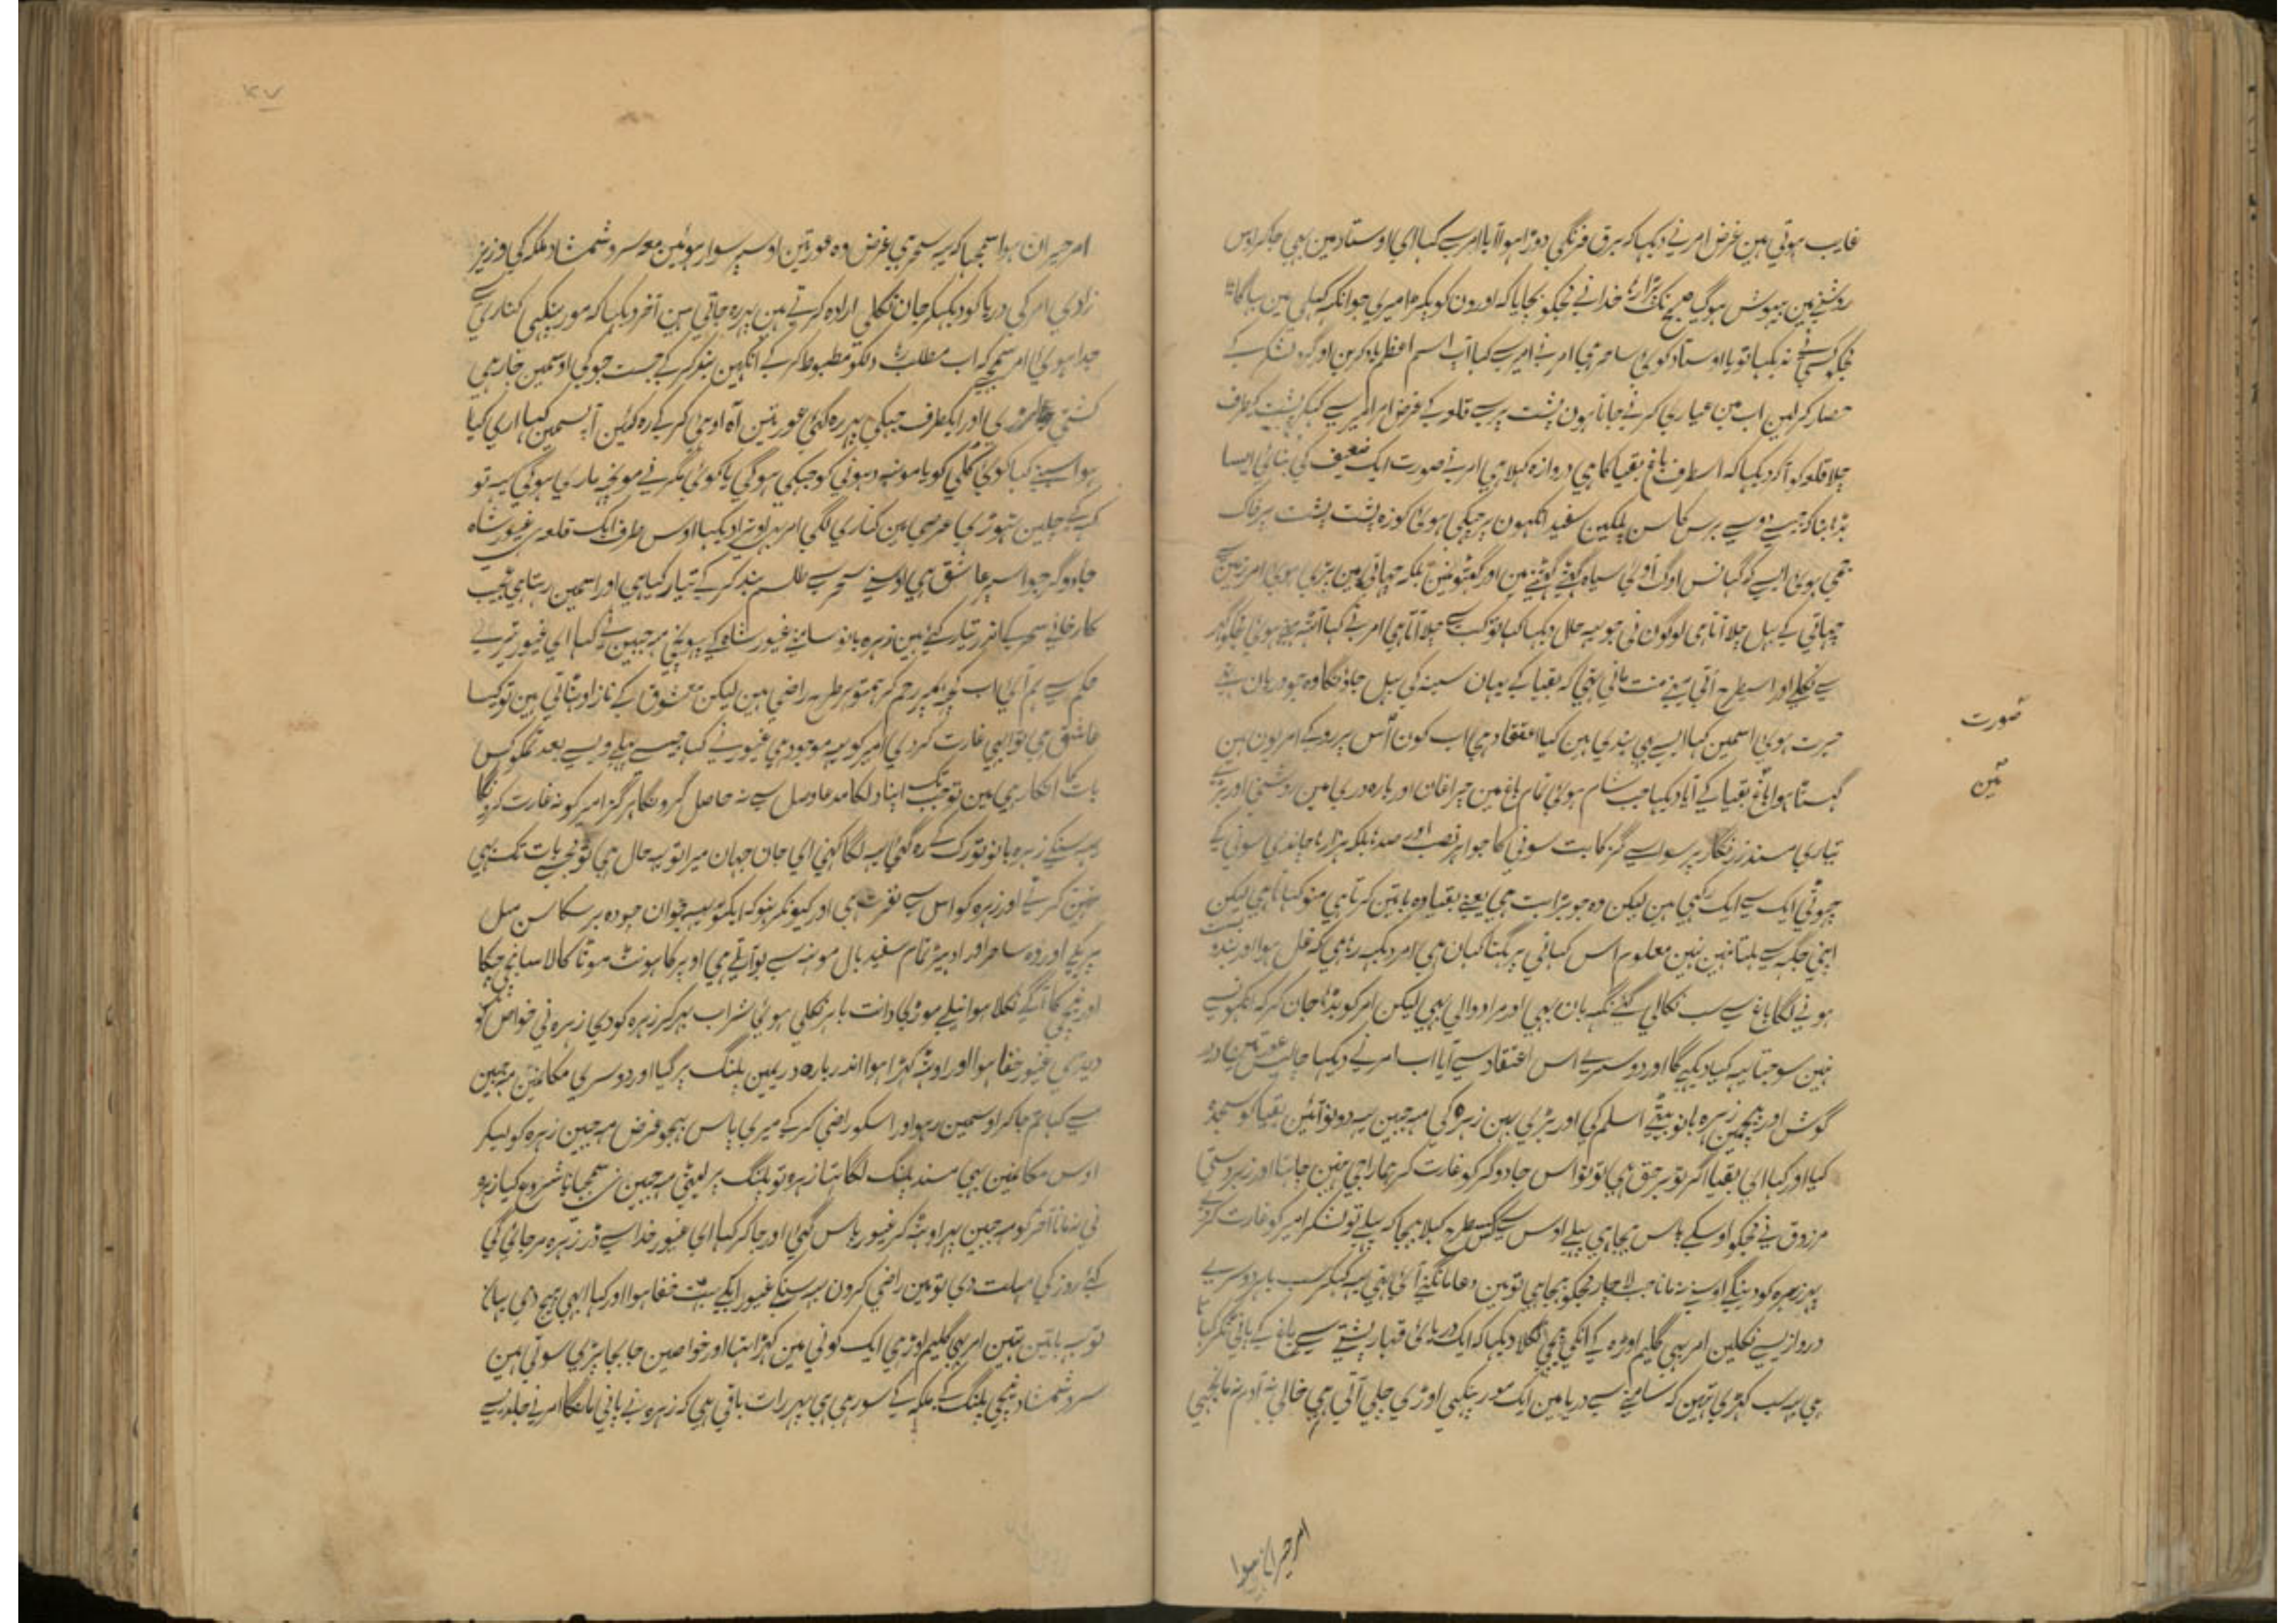 غایب ہوتی ہین غرض امر نے دیکہا کہ برق فرنگی دوڑا ہوا آیا امر سے کہا ای اوستاد مین بہی جاکر اوس
روشنے مین بیہوش ہوگیا صبح تک پڑا رہا خدا نے مجکو بچایا کہ اورون کو پکڑا میری جو انکہ کہلی مین بہاگا
مجکو کسی نے نہ دیکہا تو یا اوستاد کوئی ساحر ہی امر نے امیر سے کہا آپ اسم اعظم یاد کرین اور گرد لشکر کے
حصار کر لین اب مین عیاری کرنے جاتا ہون پشت پر سے قلعہ کے غرض امر امیر سے کہکر پشت کیطرف
چلا قلعہ کو آکر دیکہا کہ اسطرف باغ بقیا کا ہی دروازہ کہلا ہی امر نے صورت ایک ضعیف کی بنائی ایسا
بڈہا بنا کہ جیسے دو سے برس کا سن پلکین سفید انکہون پر جہکی ہوئی کوزہ پشت پشت پر خاک
جمی ہوئی ایسے کہ گہانس اوگ آئی سیاہ گہٹے گہٹنے مین اور کہنیونمین بلکہ چہاتی مین پڑی ہوئی امر زمین سے
چہاتی کے بہل چلا آتا ہی لوگون نی جو یہ حال دیکہا کہا تو کب سے چلا آتا ہی امر نے کہا
سے نکلے اور اسیطرح آتی مینے منت مانی تہی کہ بقیا کے یہان سینہ کی بہل جاونگا وہ جو وہان تہے
حیرت ہوئی اسمین کہا ایسے بہی بندی ہین کیا اعتقاد ہی اب کون اس پر روکے امر یون ہین
گہستا ہوا باغ بقیا کے آیا دیکہا جب شام ہوئی تمام باغ مین چراغان اور بارہ دری مین روشنی اور بڑے
تیاری مسند زرنگار پر سوا سے گز کا بت سونی کا جواہر نصب اور صدہا بلکہ ہزارہا چاندی سونی کے
چہوٹی ایک سے ایک رکہی ہین لیکن وہ جو بڑا بت ہی یعنے بقیا وہ باتین کرتا ہی منو کہانا ہی لیکن
اپنی جگہ سے ہلتا نہین نہین معلوم اس کہانی پر ہگتا کہان ہی امر دیکہہ رہا ہی کہ غل ہوا اور بندوبست
ہونے لگا باغ سے سب نکالی گئے نگہبان بہی اور مراد والی بہی لیکن امر کو بڈہا جان کر کہ انکہونسے
نہین سوجہتا یہ کیا دیکہے گا اور دوسرے اس اعتقاد سے آیا اب امر نے دیکہا چالیس عورتین اور
گوش اور بیچمین زہرہ بانو بیٹے اسلم کی اور بڑی بہن زہرہ کی مہ جبین یہ دونو آئین بقیا کو سجدہ
کیا اور کہا ای بقیا اگر تو برحق ہی تو تو اس جادوگر کو غارت کر ہمارا جی نہین چاہتا اور زبردستی
مرزوق نے مجکو اوسکے پاس بہیجا ہی پہلے اوس سے کسطرح کہلا بہیجا کہ پہلے تو لشکر امیر کو غارت کر دے
پہر زہرہ کو دینگے اوسنے نہ مانا جب لاچار مجکو بہیجا ہی تو مین دعا مانگنے آئی تہی یہ کہکر سب باہر دوسرے
دروازیسے نکلین امر بہی گلیم اوڑہ کے انکی پیچہی نکلا دیکہا کہ ایک دریائی قہار پشتے سے باغ کے پانی ٹکر کہاتا
ہی یہ سب کہڑی تہین کہ سامنے سے دریا مین ایک مور پنکہی اوڑی چلی آتی ہی خالی نہ آدم نہ مانجہی
صورت
ئین
امر حیران ہوا
۴۷
امر حیران ہوا سمجہا کہ یہ سحر ہی غرض وہ عورتین اوسپر سوار ہوئین معہ سرو شمشاد ملکہ کی وزیر
زادی امر کی دریا کو دیکہکر جان نکلی ارادہ کرتے ہین پہر رہ جاتی ہین آخر دیکہا کہ مور پنکہی کناری سے
جدا ہوئی امر سمجہے کہ اب مطلب رہا دلکو مظبوط کر کے انکہین بند کر کے جست جو کی اوسمین جا رہی
کشتی اور ایکطرف جہکی پہر رہ گئی عورتین آہ اوہی کر کے رہ گئین آپسمین کہا اری کیا
ہوا سنے کہا کوئی کلی کو یا مونہہ دہونی کو جہکی ہوگی یا کوئی مگر نے مونچہہ ماری ہوگی یہ تو
کہہ کے چلین تہوڑی عرصی مین کناری لگی امر بہی اوترا دیکہا اوس طرف ایک قلعہ ہی غیور شاہ
جادوگر جو اسپر عاشق ہی اوسنے سحر سے طلسم بند کر کے تیار کیا ہی اور اسمین رہتا ہی عجیب
کارخانے سحر کے اندر تیار کئے ہین زہرہ بانو سامنے غیور شاہ کے پہونچی مہ جبین نے کہا ای غیور تیرے
حکم سے ہم آئی اب کچہہ ہمپر رحم کر ہمتو ہر طرح راضی ہین لیکن معشوق کے ناز اوٹہاتی ہین تو کیسا
عاشق ہی تو ابہی غارت کر دی امیر کو یہ موجود ہی غیور نے کہا جیسے پہلے ویسے بعد تمکو کس
بات کا انکار ہی مین تو جب تک اپنا دلکا مدعا وصل سے نہ حاصل کرونگا ہرگز امیر کو نہ غارت کرونگا
یہ سنکے زہرہ بانو تو رک کے رہ گئی یہ لگا کہنی ای جان جہان میرا تو یہ حال ہی تو مجسے بات تک بہی
نہین کرتے اور زہرہ کو اس سے نفرت ہی اور کیونکر نہو کہ ایکتو یہ جوان چودہ برسکا سن مثل
پریکے اور وہ ساحر اور ادہیڑ تمام سفید بال مونہہ سے بو آتے ہی اوپر کا ہونٹ موٹا کالا سانپ جیسا
اور نیچی کا آگے نکلا ہوا نیلے موڑی دانت باہر نکلی ہوئی شراب بہر کر زہرہ کو دی زہرہ نی خواص کو
دیدی غیور خفا ہوا اور اوٹہہ کہڑا ہوا اندر بارہ دریمین پلنگ پر گیا اور دوسری مکانمین مہ جبین
سے کہا تم جاکر اوسمین رہو اور اسکو راضی کر کے میری پاس بہیجو غرض مہ جبین زہرہ کو لیکر
اوس مکانمین بہی مسند پلنگ لگا تہا زہرہ تو پلنگ پر لیٹی مہ جبین نے سمجہانا شروع کیا زہرہ
نی نہ مانا آخر کو مہ جبین پہر اوٹہہ کر غیور پاس گئی اور جاکر کہا ای غیور خدا سے ڈر زہرہ مر جائی گی
کئے روز کی مہلت دی تو مین راضی کرون یہ سنکے غیور ایکے بہت خفا ہوا اور کہا ابہی بہیج دی یہان
تو یہ باتین تہین امر بہی گلیم اوڑہی ایک کونی مین کہڑا تہا اور خواصین جا بجا پڑی سوتی ہین
سرو شمشاد نیچی پلنگ کے ملکہ کے سو رہی ہی پہر رات باقی ہی کہ زہرہ نے پانی مانگا امر نے جلدیسے